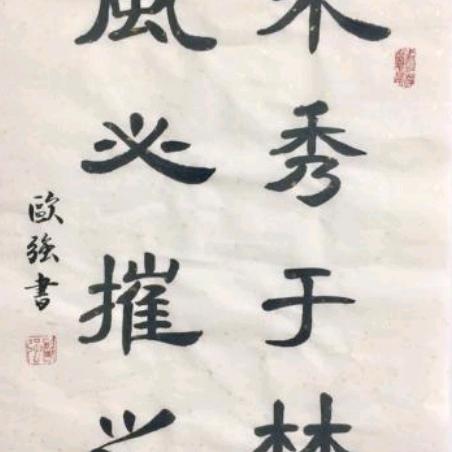 木秀于林
風必摧之
歐強書